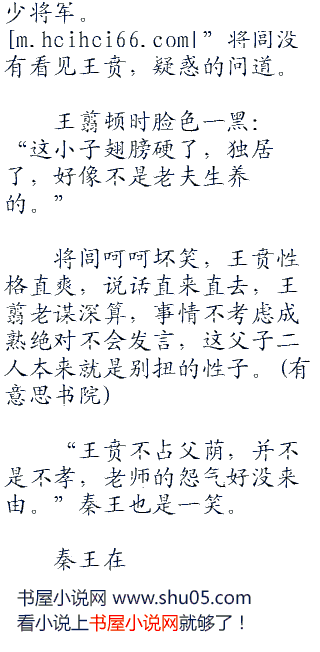 少将军。
[m.hcihci66.com|”将闾没
有看见王贲，疑惑的问道。
王翦顿时脸色一黑：
“这小子翅膀硬了，独居
了，好像不是老夫生养
的。”
将闾呵呵坏笑，王贲性
格直爽，说话直来直去，王
翦老谋深算，事情不考虑成
熟绝对不会发言，这父子二
人本来就是别扭的性子。(有
意思书院)
“王贲不占父荫，并不
是不孝，老师的怨气好没来
由。”秦王也是一笑。
秦王在
书屋小说网 www.shu05.com
看小说上书屋小说网就够了！